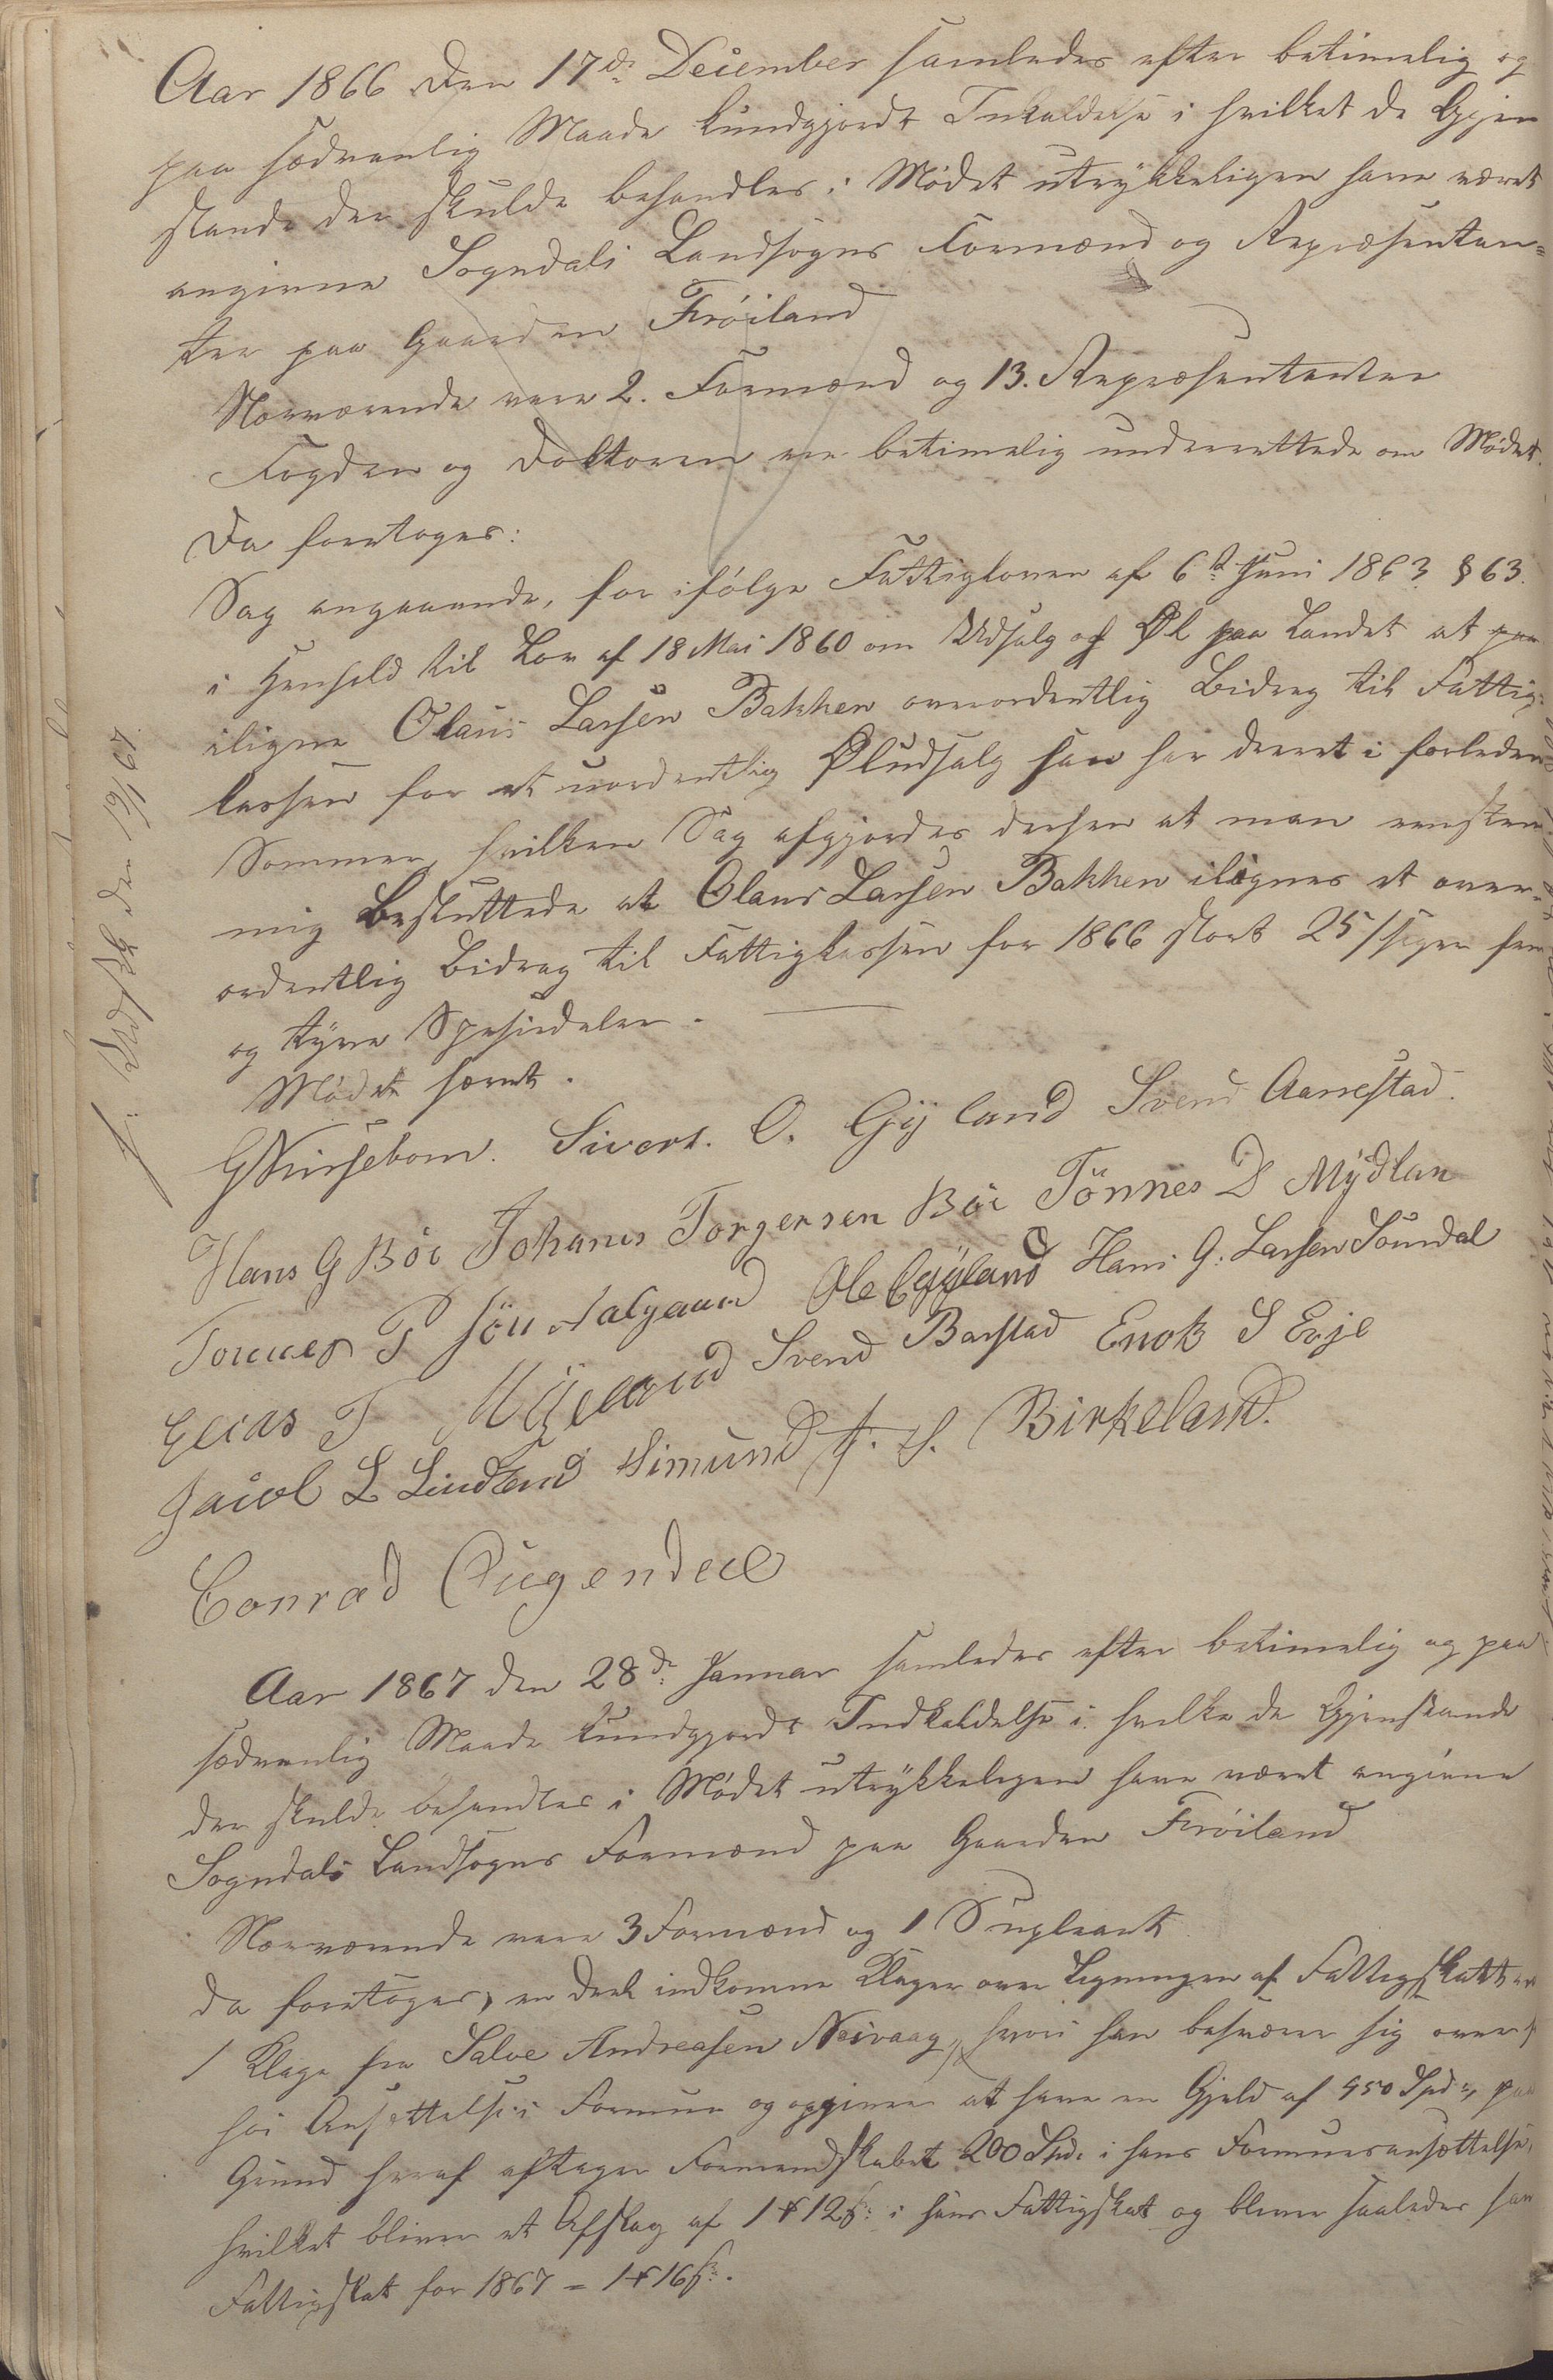 Aar 1866 den 17de December samledes efter betimelig og
paa sædvanlig Maade kundgjordt Inkaldelse i hvilket de Gjen
stande der skulde behandles i Mødet utrykkeligen have været
angivne Sogndals Landsogns Formænd og Repræsentan=
ter paa Gaarden Frøiland
Nærværende vare 2. Formænd og 13. Repræsentanter
Fogden og Doktoren ere betimelig underrettede om Mødet.
Da foretoges:
Sag angaaende, for ifølge Fattigloven af 6te Juni 1863 § 63.
i Henhold til Lov af 18 Mai 1860 om Udsalg af Øl paa Landet at paa
iligne Olaus Larsen Bakken overordentlig Bidrag til Fattig=
kassen for et uordentlig Øludsalg han har drevet i forleden
Sommer, hvilken Sag afgjordes derhen at man eenstem
mig Besluttede at Olaus Larsen Bakken ilignes et over=
ordentlig Bidrag til Fattigkassen for 1866 stort 25/ siger fem
og tyve Spesiedaler.
Mødet hævet.
Sivert. O. Gyland Svend Aarrestad.
Hans G Bøe Johanes Torgersen Bøe Tönnes D Mydlan
Tonnes T Ole Gyland Hans G. Larsen Somdal
Elias T Svend Barstad Enok S Evje
Jacob L Lindland Simund Birkeland.
Conrad
Aar 1867 den 28de Januar samledes efter betimelig og paa
sædvanlig Maade kundgjordt Indkaldelse i hvilke de Gjenstande
der skulde behandles i Mødet utrykkeligen have været angivne
Sogndals Landsogns Formænd paa Gaarden Frøiland
Nærværende vare 3 Formænd og 1 Supleant
da foretoges, en deel indkomne Klager over Ligningen af Fattigskatten
1 Klage fra Salve Andreasen Nesvaag, hvori han besværer sig over
høi Ansettelse i Formue og opgiver at have en Gjeld af 950 Spd, paa
Grund heraf aftager Formandskabet 200 Spd. i hans Formuesansættelse,
hvilket bliver et Afslag af 1 # 12 ß i hans Fattigskat og bliver saaledes han
Fattigskat for 1867 = 1 # 16 ß.